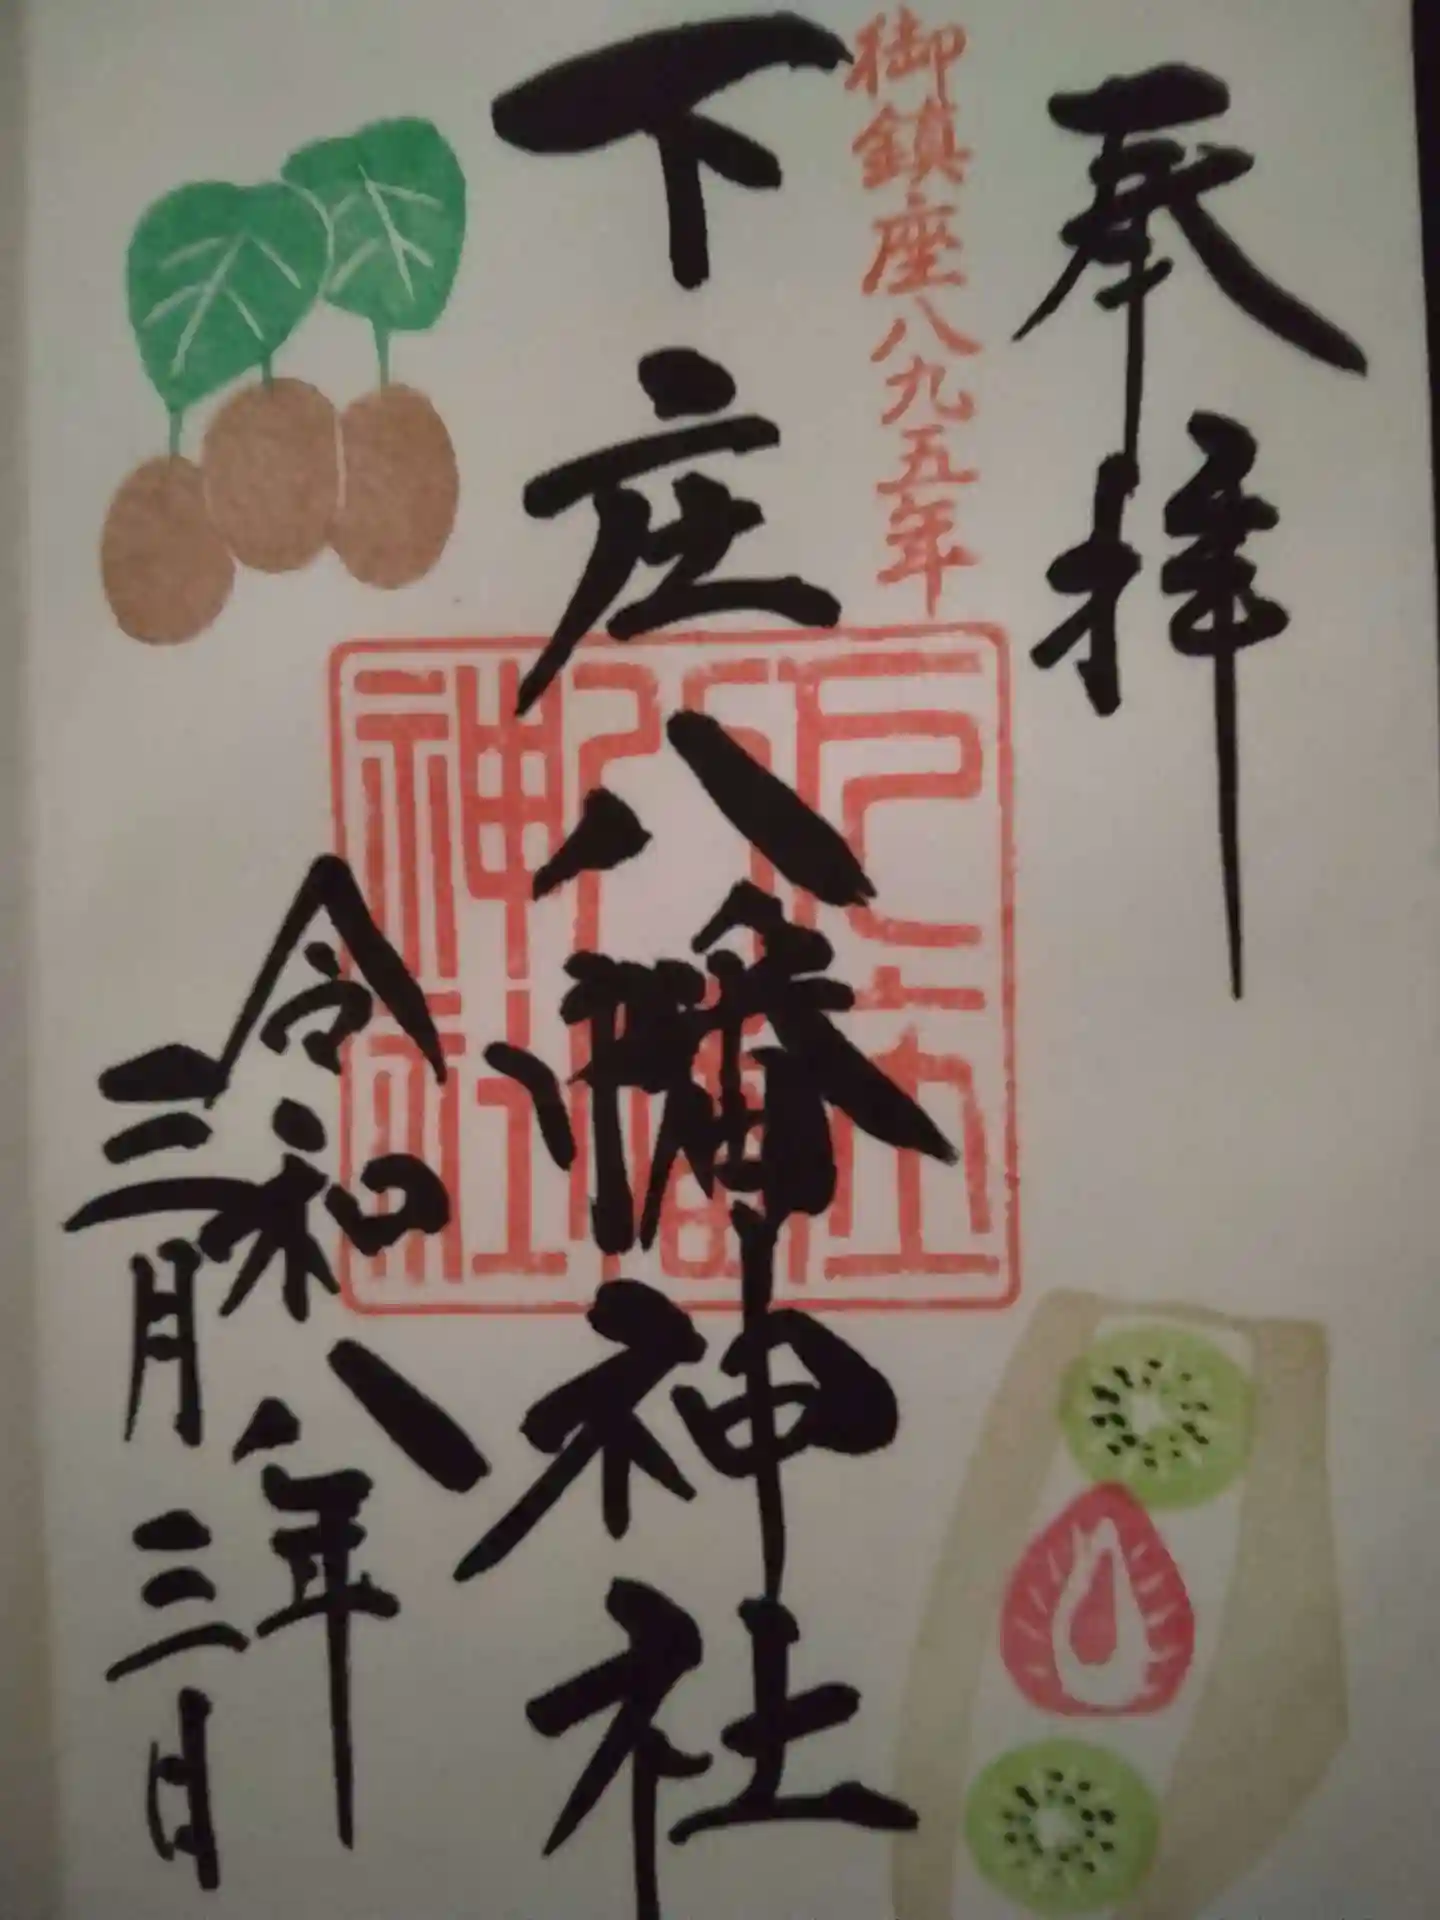 奉拝
御鎮座八九五年
下庄八幡神社
下庄
八幡
神社
令和八年
三月三日